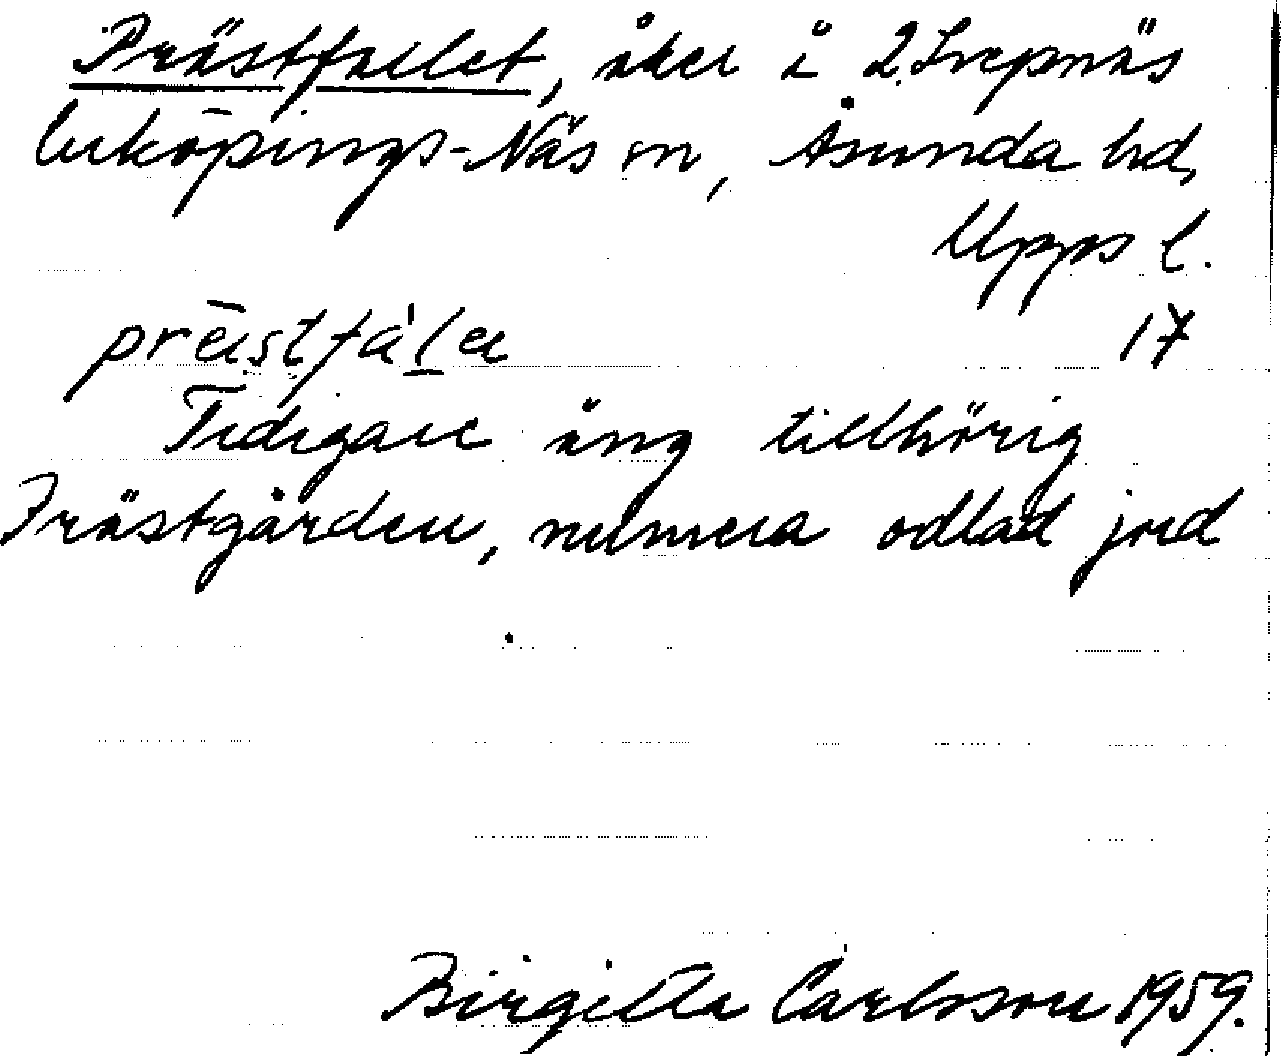 Prästfallet, åker i 2 Svepnäs
Enköpings-Näs sn, Åsunda hd,
Upps l.
17
Tidigare äng tillhörig
Prästgården, numera odlad jord
Birgitta Carlsson 1959.